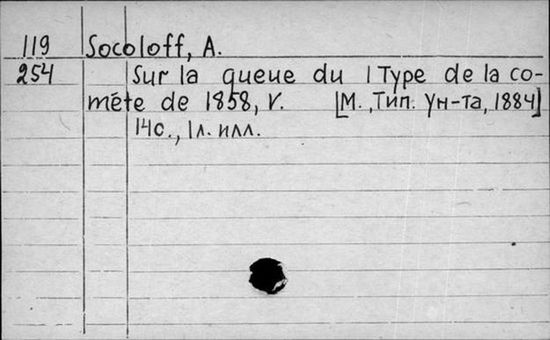 119 Socoloff, A.
254 Sur la queue du I Type de la co-
méte de 1858, V. [М., Тип. Ун-та, 1884]
14с., 1л. илл.